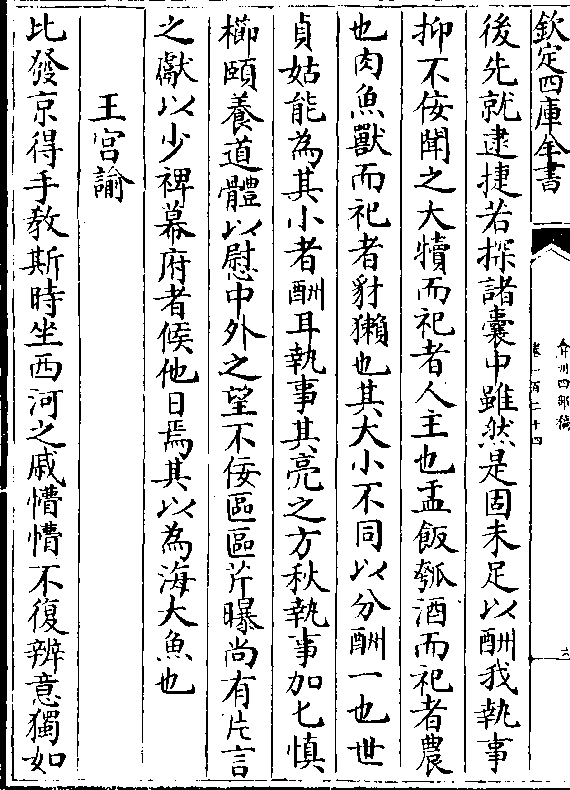 欽定四庫全書
弇州四部稿
卷一百二十四
後先就逮捷若探諸囊中雖然是固未足以酬我執事
抑不佞聞之大犢而祀者人主也盂飯瓠酒而祀者農
也肉魚獸而祀者豺獺也其大小不同以分酬一也世
貞姑能為其小者酬耳執事其亮之方秋執事加匕慎
櫛頤養道體以慰中外之望不佞區區芹曝尚有片言
之獻以少裨幕府者候他日焉其以為海大魚也
王宫諭
比發京得手教斯時坐西河之戚慒慒不復辨意獨如